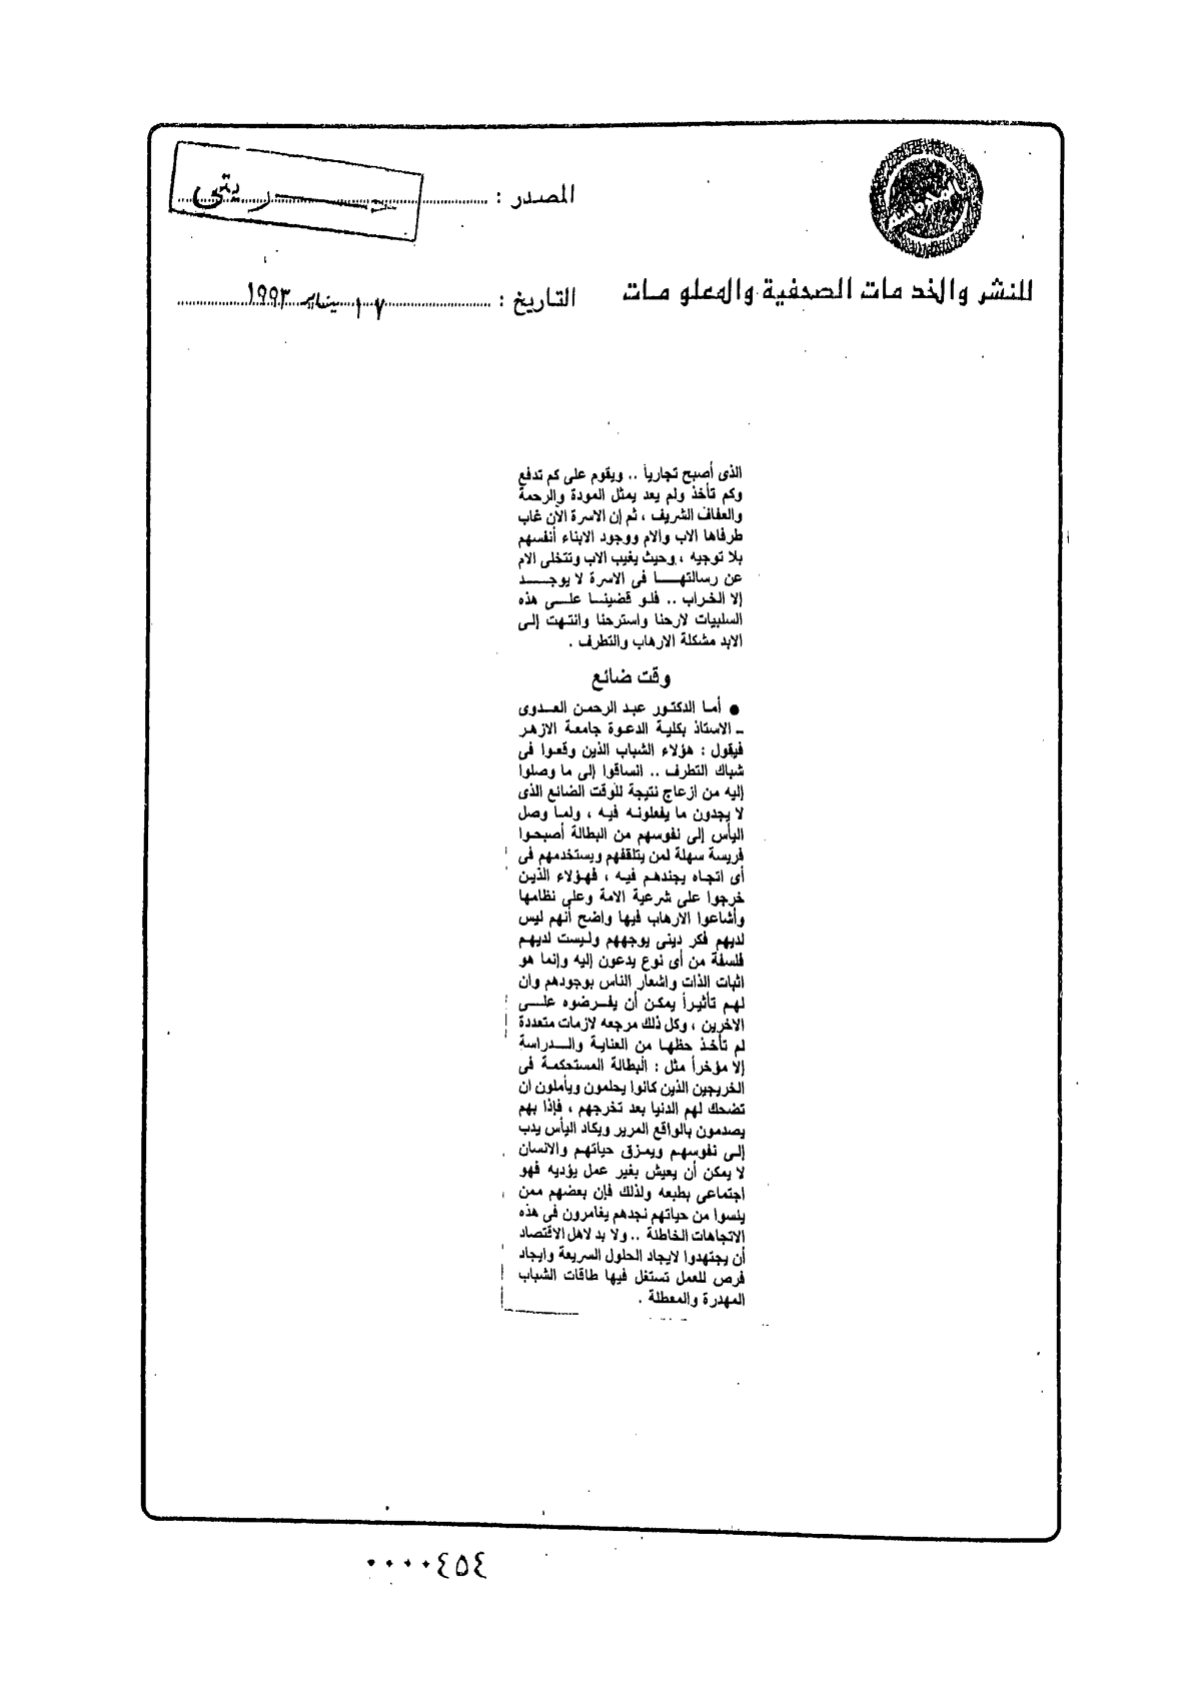 المصدر : حـــريتى
للنشر والخدمات الصحفية والمعلومات
التاريخ : ١٧ يناير ١٩٩٣
الذى أصبح تجارياً .. ويقوم على كم تدفع
وكم تأخذ ولم يعد يمثل المودة والرحمة
والعفاف الشريف ، ثم إن الاسرة الآن غاب
طرفاها الاب والام ووجود الابناء أنفسهم
بلا توجيه ، وحيث يغيب الاب وتتخلى الام
عن رسالتهــا فى الاسرة لا يوجــد
إلا الخراب .. فلو قضينا علــى هذه
السلبيات لارحنا واسترحنا وانتهت إلى
الابد مشكلة الارهاب والتطرف .
وقت ضائع
● أما الدكتور عبد الرحمن العدوى
ـ الاستاذ بكلية الدعوة جامعة الازهر
فيقول : هؤلاء الشباب الذين وقعوا فى
شباك التطرف .. انساقوا إلى ما وصلوا
إليه من ازعاج نتيجة للوقت الضائع الذى
لا يجدون ما يفعلونه فيه ، ولما وصل
اليأس إلى نفوسهم من البطالة أصبحوا
فريسة سهلة لمن يتلقفهم ويستخدمهم فى
أى اتجاه يجندهم فيه ، فهؤلاء الذين
خرجوا على شرعية الامة وعلى نظامها
وأشاعوا الارهاب فيها واضح أنهم ليس
لديهم فكر دينى يوجههم وليست لديهم
فلسفة من أى نوع يدعون إليه وإنما هو
اثبات الذات واشعار الناس بوجودهم وان
لهم تأثيراً يمكن أن يفــرضوه علــى
الاخرين ، وكل ذلك مرجعه لازمات متعددة
لم تأخذ حظها من العناية والــدراسة
إلا مؤخراً مثل : البطالة المستحكمة فى
الخريجين الذين كانوا يحلمون ويأملون ان
تضحك لهم الدنيا بعد تخرجهم ، فإذا بهم
يصدمون بالواقع المرير ويكاد اليأس يدب
إلى نفوسهم ويمزق حياتهم والانسان
لا يمكن أن يعيش بغير عمل يؤديه فهو
اجتماعى بطبعه ولذلك فإن بعضهم ممن
يئسوا من حياتهم نجدهم يغامرون فى هذه
الاتجاهات الخاطئة .. ولا بد لاهل الاقتصاد
أن يجتهدوا لايجاد الحلول السريعة وايجاد
فرص للعمل تستغل فيها طاقات الشباب
المهدرة والمعطلة .
٠٠٠٠٤٥٤